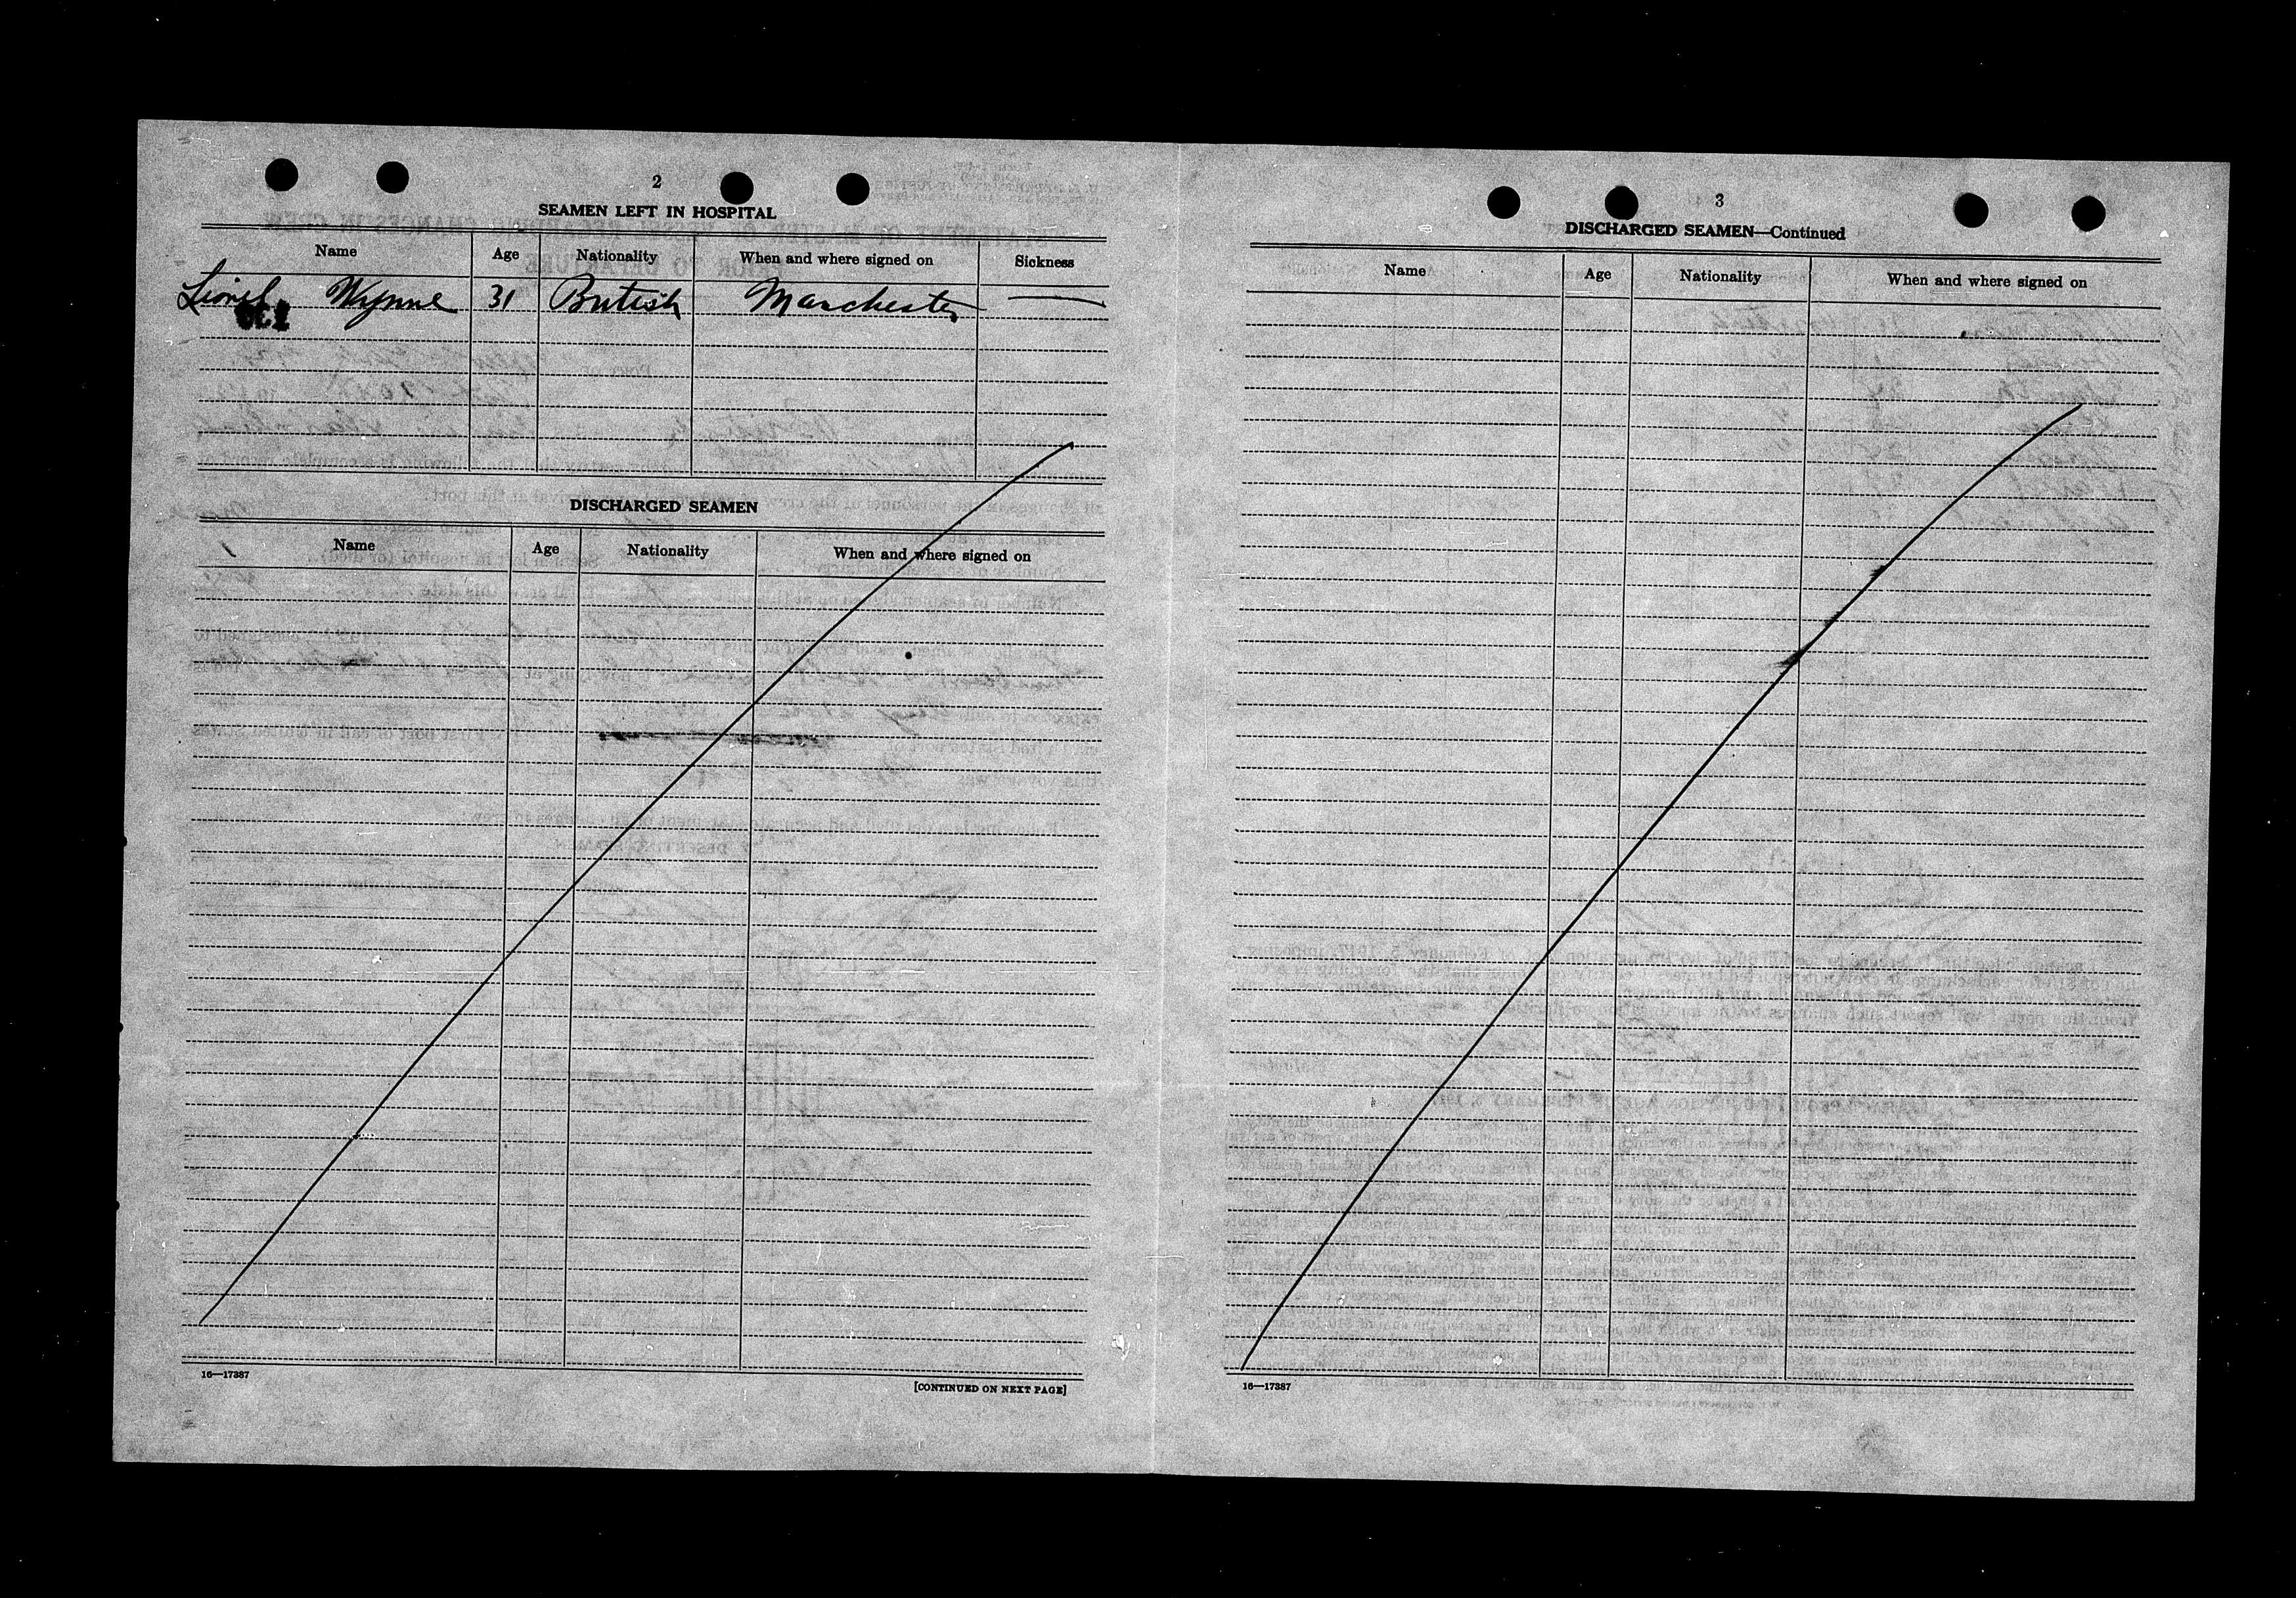 2
SEAMEN LEFT IN HOSPITAL
Name Age Nationality When and where signed on Sickness
Lionel Wynne 31 British Manchester —
DISCHARGED SEAMEN
Name Age Nationality When and where signed on
16—17387
[CONTINUED ON NEXT PAGE]
3
DISCHARGED SEAMEN—Continued
Name Age Nationality When and where signed on
16—17387